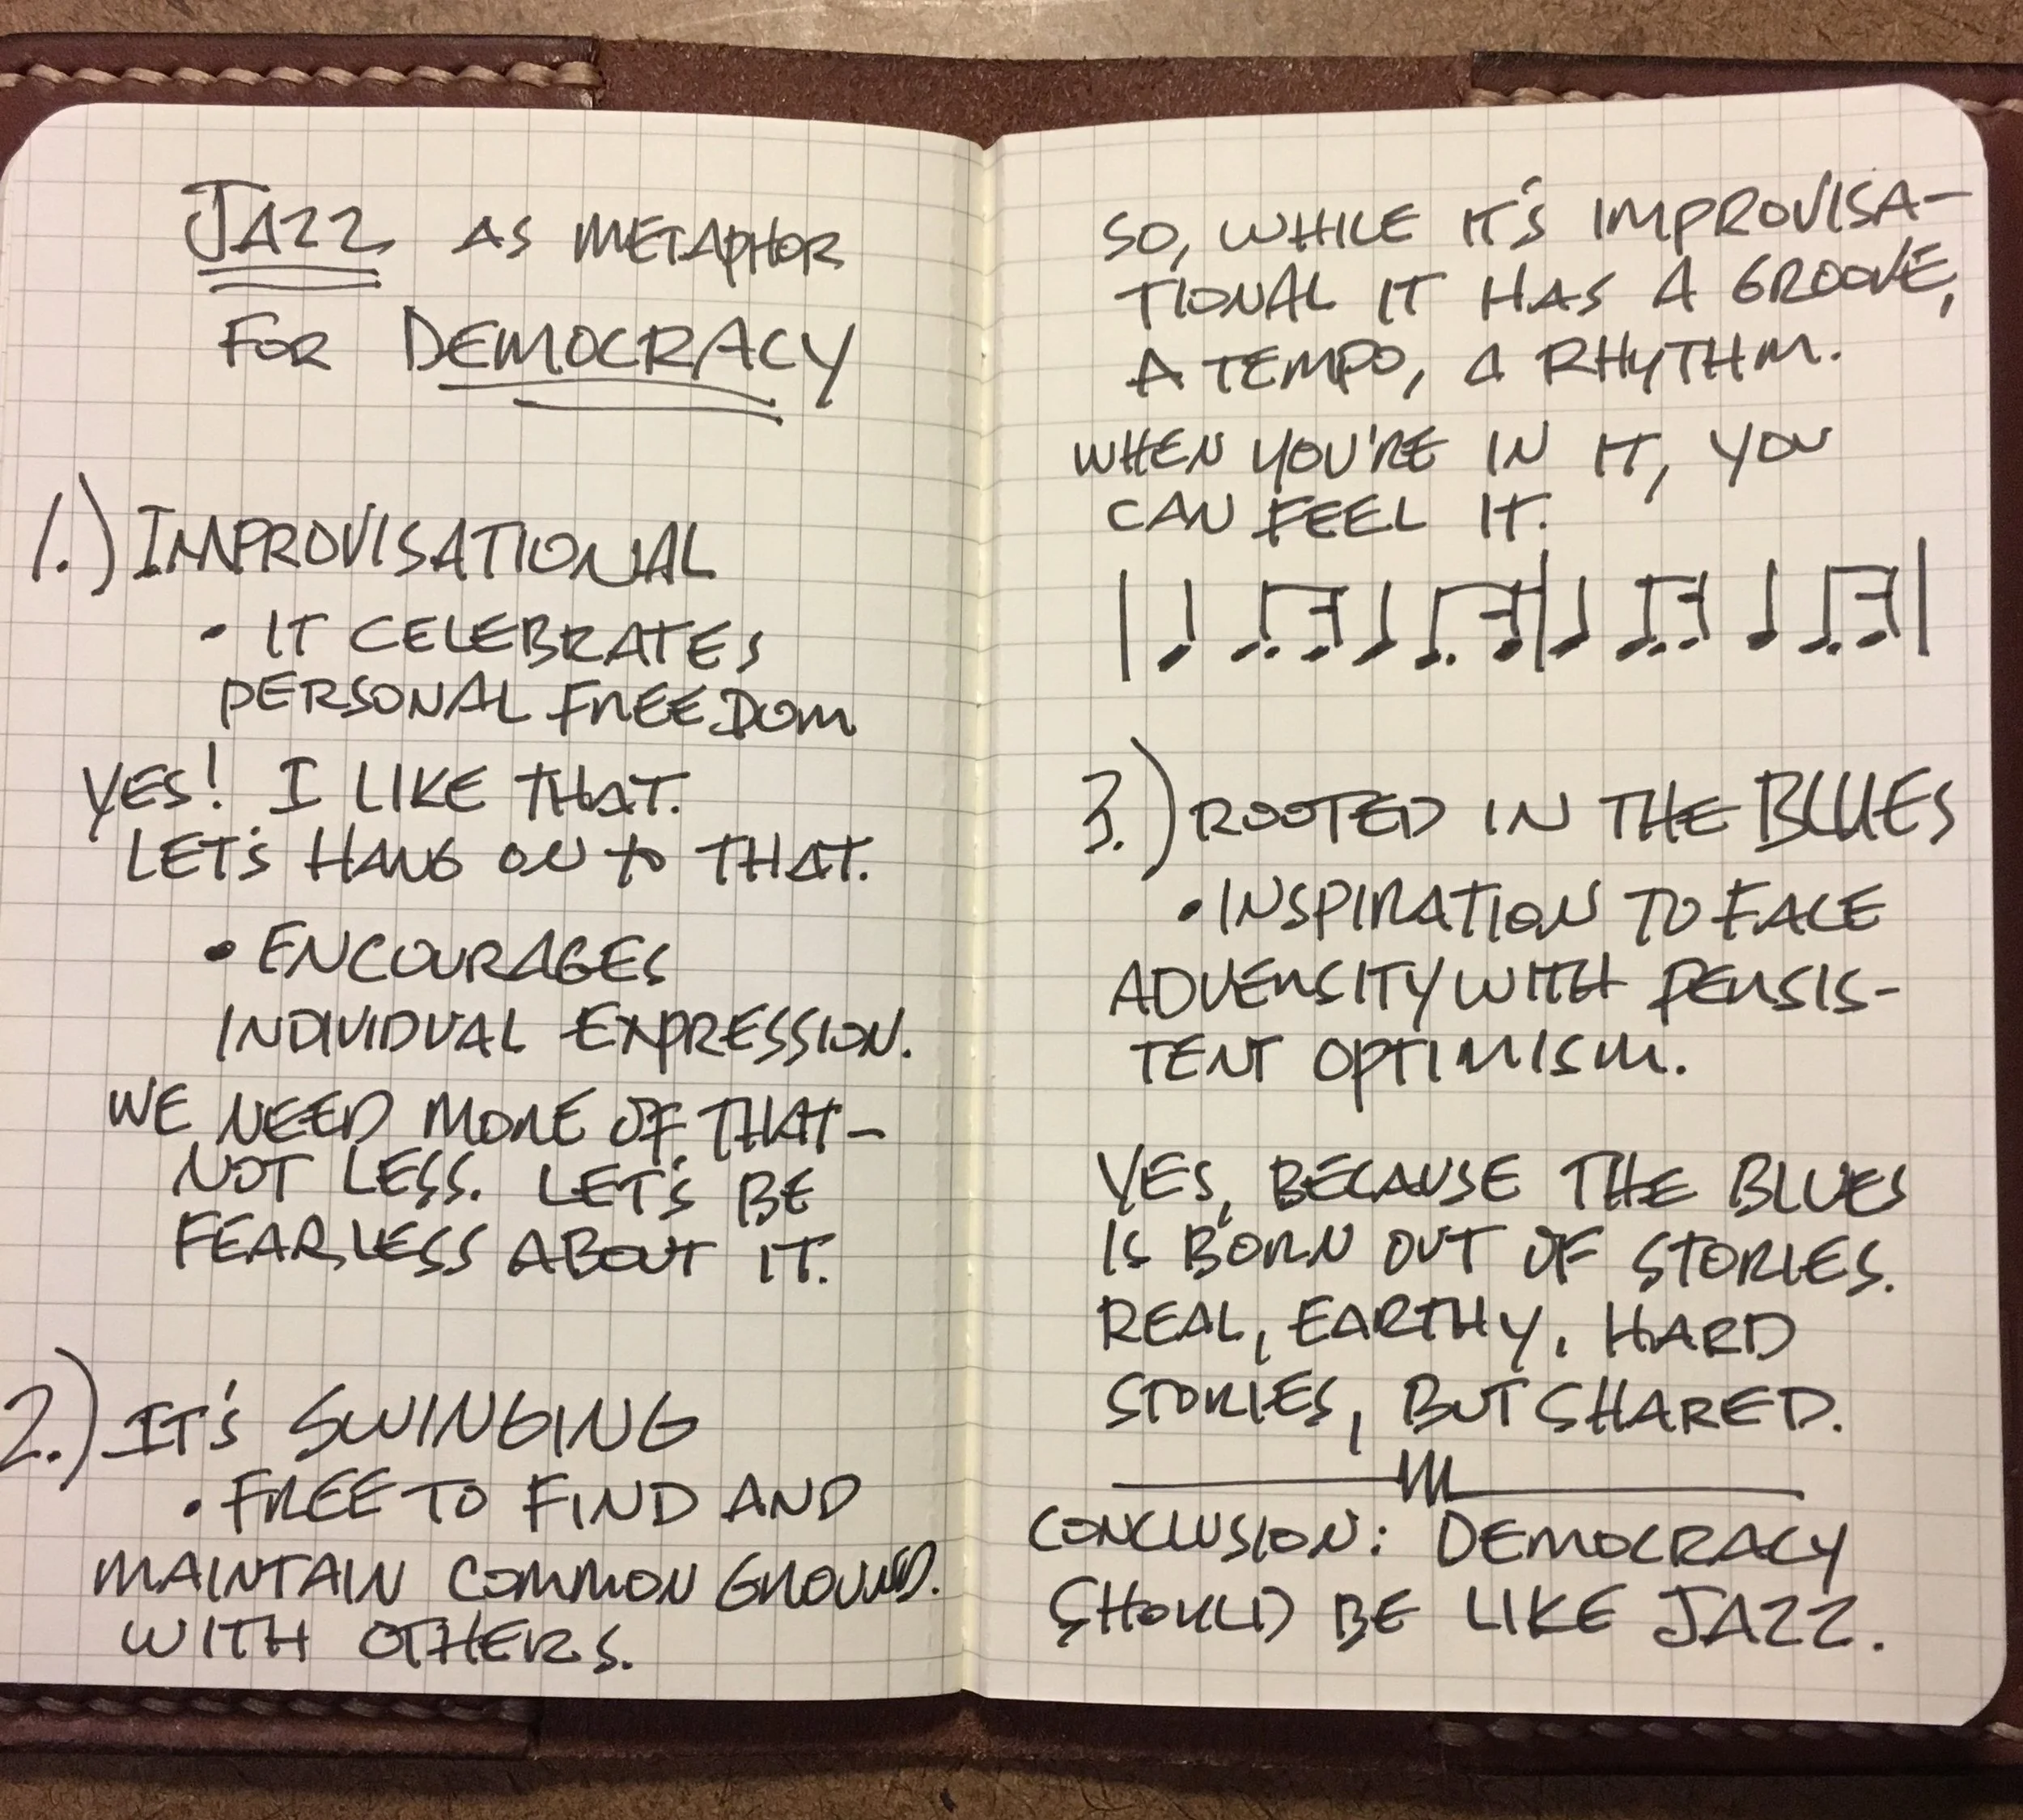 JAZZ AS METAPHOR
FOR DEMOCRACY
1.) IMPROVISATIONAL
• IT CELEBRATES
PERSONAL FREEDOM
YES! I LIKE THAT.
LET'S HANG ON TO THAT.
• ENCOURAGES
INDIVIDUAL EXPRESSION.
WE NEED MORE OF THAT—
NOT LESS. LET'S BE
FEARLESS ABOUT IT.
2.) IT'S SWINGING
• FREE TO FIND AND
MAINTAIN COMMON GROUND.
WITH OTHERS.
SO, WHILE IT'S IMPROVISA-
TIONAL IT HAS A GROOVE,
A TEMPO, A RHYTHM.
WHEN YOU'RE IN IT, YOU
CAN FEEL IT.
3.) ROOTED IN THE BLUES
• INSPIRATION TO FACE
ADVERSITY WITH PERSIS-
TENT OPTIMISM.
YES, BECAUSE THE BLUES
IS BORN OUT OF STORIES.
REAL, EARTHY, HARD
STORIES, BUT SHARED.
CONCLUSION: DEMOCRACY
SHOULD BE LIKE JAZZ.